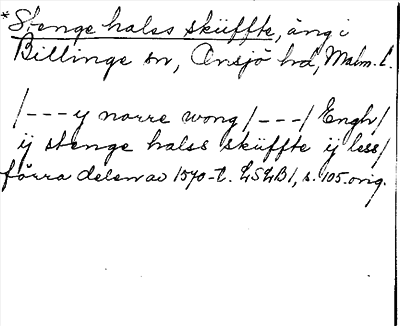 *Stenge halss sküffte, äng i
Billinge sn, Onsjö hd, Malm. l.
/--- y norre wong /---/ Engh/
ij stenge halss sküffte ij less/
förra delen av 1570-t. LSLB1, s. 105. orig.